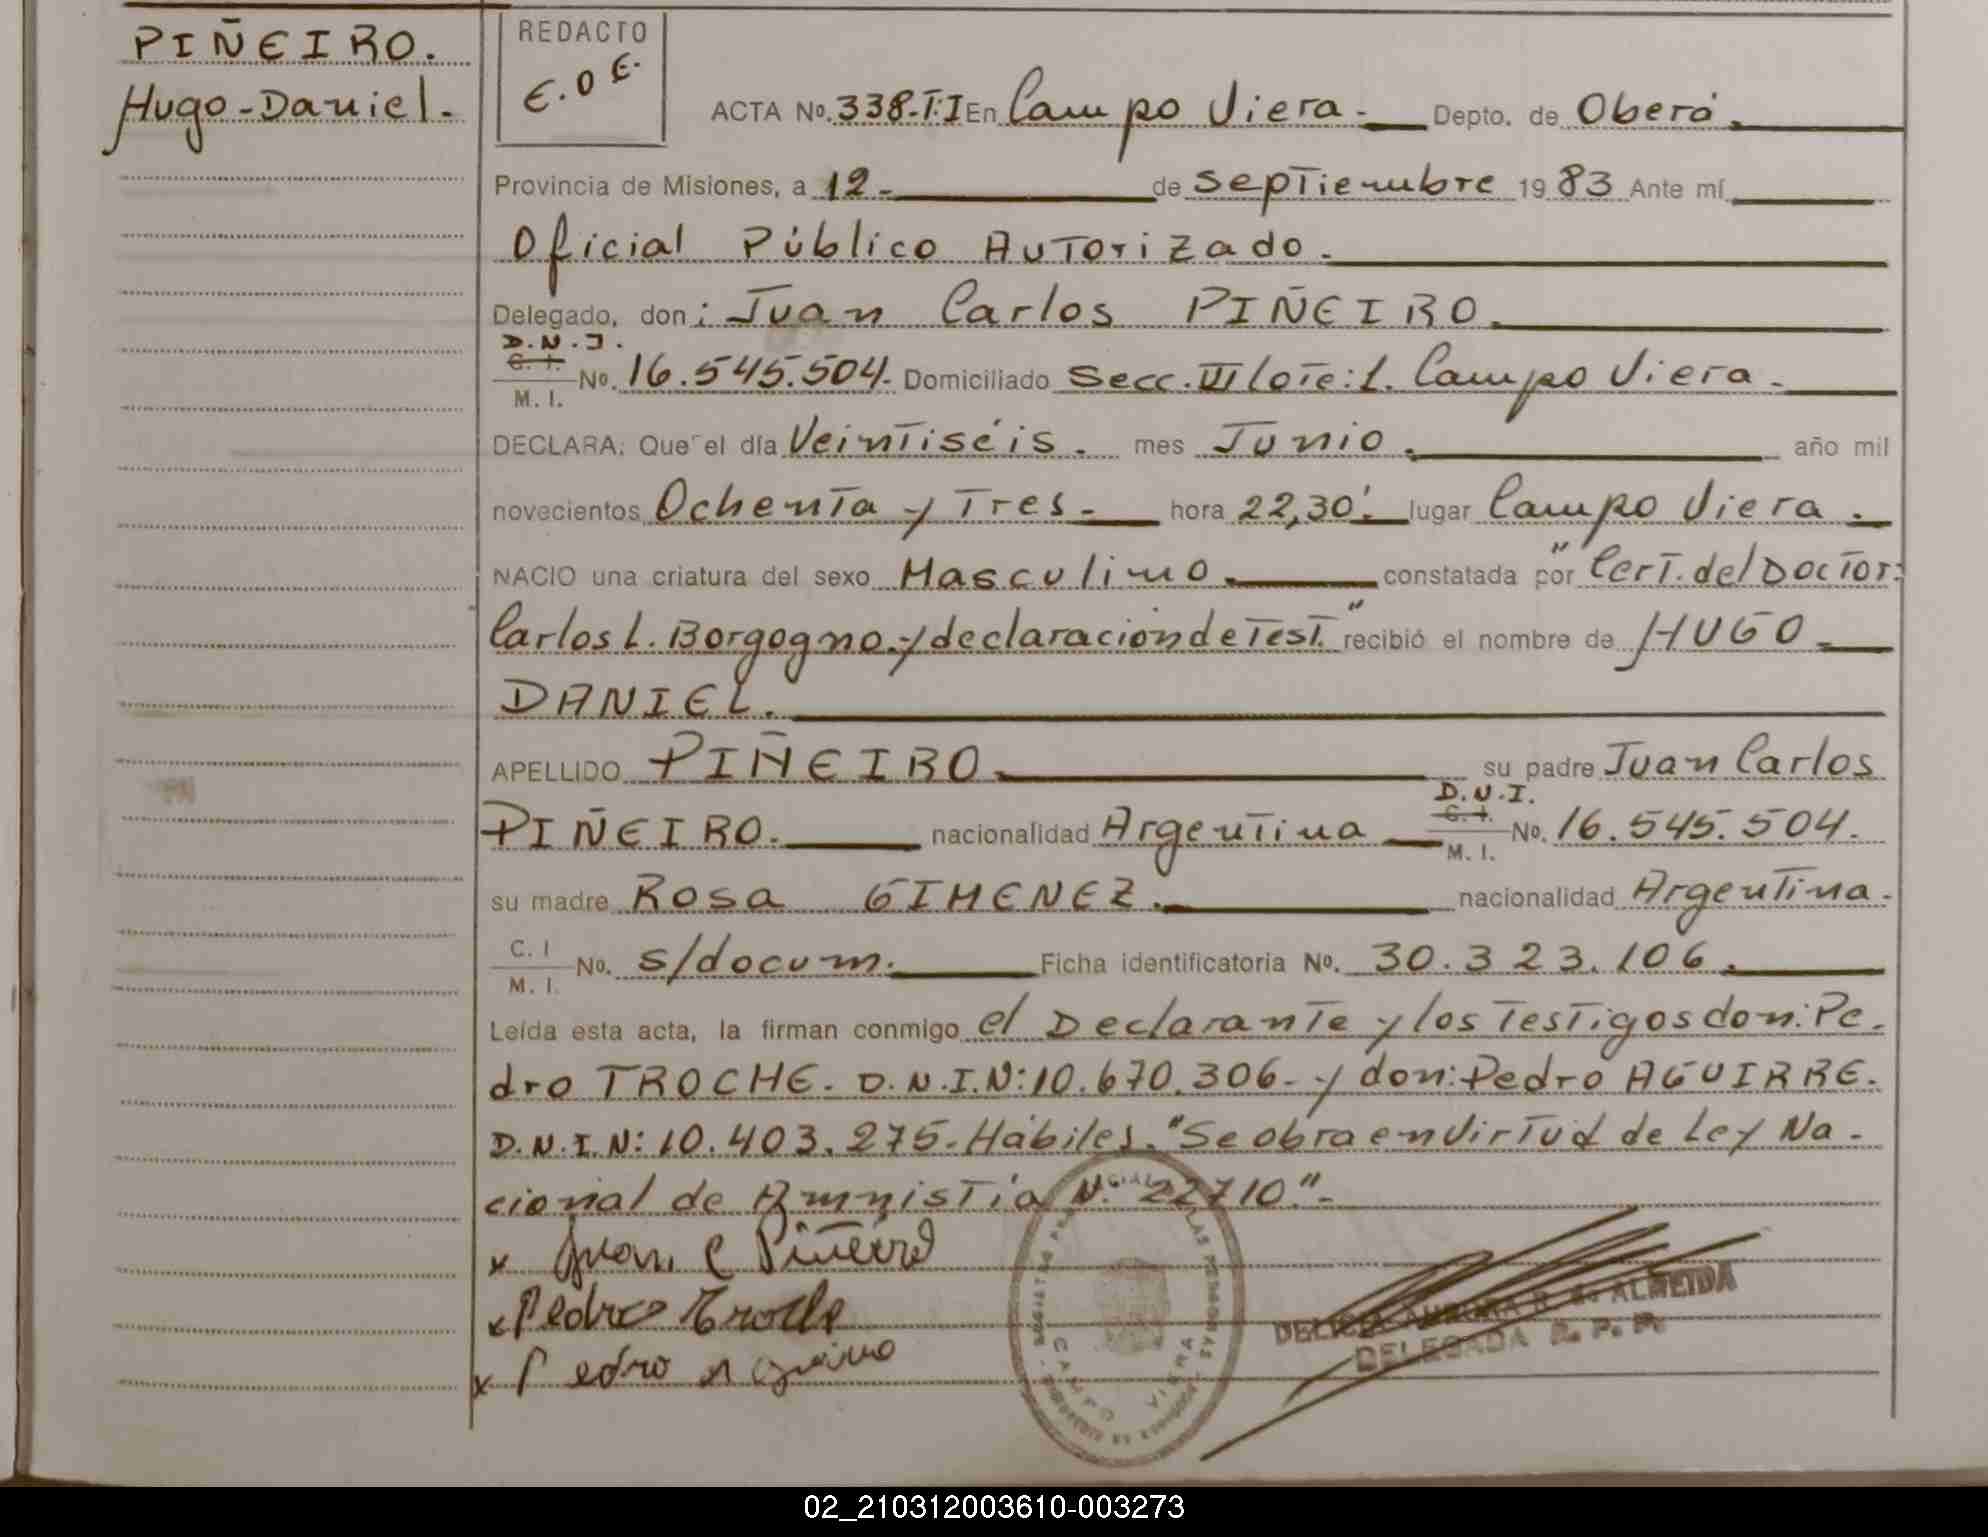 PIÑEIRO.
Hugo-Daniel.-
REDACTO
E.O.E.
ACTA No. 338-T:I En Campo Viera.- Depto. de Oberá.
Provincia de Misiones, a 12.- de septiembre 19 83 Ante mí
Oficial Público Autorizado.
Delegado, don: Juan Carlos PIÑEIRO.
D.N.I.
C. I.
M. I.
No. 16.545.504.- Domiciliado Secc. III lote: 1. Campo Viera.-
DECLARA: Que el día Veintiséis. mes Junio. año mil
novecientos Ochenta y Tres.- hora 22,30'. lugar Campo Viera.
NACIO una criatura del sexo Masculino. constatada por "Cert. del Doctor:
Carlos L. Borgogno.-y declaración de Test." recibió el nombre de HUGO
DANIEL.
APELLIDO PIÑEIRO. su padre Juan Carlos
PIÑEIRO. nacionalidad Argentina D.N.I. C. I. M. I. No. 16.545.504.
su madre Rosa GIMENEZ. nacionalidad Argentina.
C. I M. I. No. s/docum. Ficha identificatoria No. 30.323.106.
Leída esta acta, la firman conmigo el Declarante y los Testigos don: Pe-
dro TROCHE. D.N.I.N: 10.670.306.- y don: Pedro AGUIRRE.
D.N.I.N: 10.403.275.- Hábiles. "Se obra en Virtud de Ley Na-
cional de Amnistía N.º 22710".-
x Juan C Piñeiro
x Pedro Troche
x Pedro Aguirre
CAMPO VIERA
R. de ALMEIDA
DELEGADA R. P. P.
02_210312003610-003273